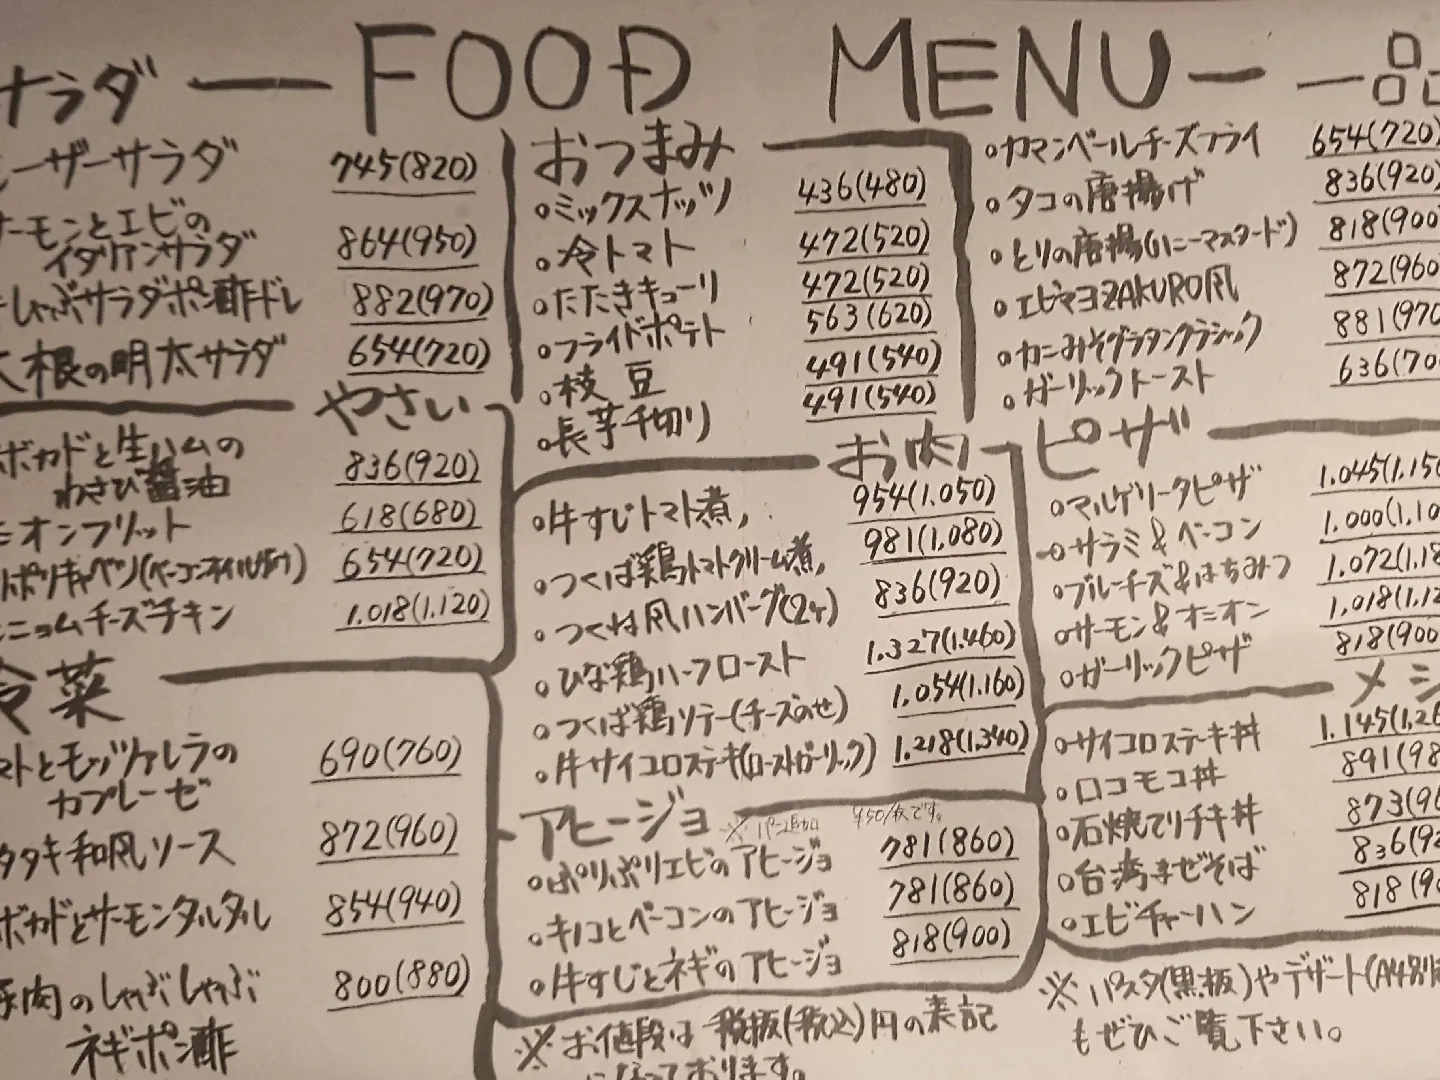 サラダ FOOD MENU 一品
シーザーサラダ 745(820)
サーモンとエビの
イタリアンサラダ 864(950)
しゃぶサラダポン酢ドレ 882(970)
大根の明太サラダ 654(720)
やさい
アボカドと生ハムの
わさび醤油 836(920)
オニオンフリット 618(680)
ポリポリキャベツ(ベーコンオイルがけ) 654(720)
ニョムチーズチキン 1.018(1.120)
冷菜
トマトとモッツァレラの
カプレーゼ 690(760)
タタキ和風ソース 872(960)
アボカドとサーモンタルタル 854(940)
豚肉のしゃぶしゃぶ
ネギポン酢 800(880)
おつまみ
。ミックスナッツ 436(480)
。冷トマト 472(520)
。たたきキューリ 472(520)
。フライドポテト 563(620)
。枝豆 491(540)
。長芋千切り 491(540)
お肉
。牛すじトマト煮, 954(1.050)
。つくば鶏トマトクリーム煮, 981(1,080)
。つくね風ハンバーグ(2ヶ) 836(920)
。ひな鶏ハーフロースト 1.327(1.460)
。つくば鶏ソテー(チーズのせ) 1.054(1.160)
。牛サイコロステーキ(ローストガーリック) 1.218(1.340)
アヒージョ ※パン追加 450/枚です。
。ぷりぷりエビのアヒージョ 781(860)
。キノコとベーコンのアヒージョ 781(860)
。牛すじとネギのアヒージョ 818(900)
※お値段は税抜(税込)円の表記
になっております。
。カマンベールチーズフライ 654(720)
。タコの唐揚げ 836(920)
。とりの唐揚(ハニーマスタード) 818(900
。エビマヨZAKURO風 872(960
。カニみそグラタンクラシック 881(970
。ガーリックトースト 636(70
ピザ
。マルゲリータピザ 1.045(1.150
。サラミ&ベーコン 1.000(1,10
。ブルーチーズ&はちみつ 1.072(1.18
。サーモン&オニオン 1.018(1.12
。ガーリックピザ 818(900
メシ
。サイコロステーキ丼 1.145(1.26
。ロコモコ丼 891(98
。石焼てりチキ丼 873(96
。台湾まぜそば 836(92
。エビチャーハン 818(90
※パスタ(黒板)やデザート(A4別紙
もぜひご覧下さい。